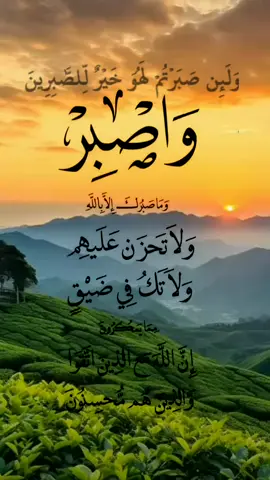 وَلَئِن صَبَرْتُمْ لَهُوَ خَيْرٌ لِّلصَّٰبِرِينَ
وَاصْبِرْ
وَمَا صَبْرُكَ إِلَّا بِاللَّهِ
وَلَا تَحْزَنْ عَلَيْهِمْ
وَلَا تَكُ فِي ضَيْقٍ
مِمَّا يَمْكُرُونَ
إِنَّ اللَّهَ مَعَ الَّذِينَ اتَّقَوْا
وَالَّذِينَ هُمْ مُحْسِنُونَ